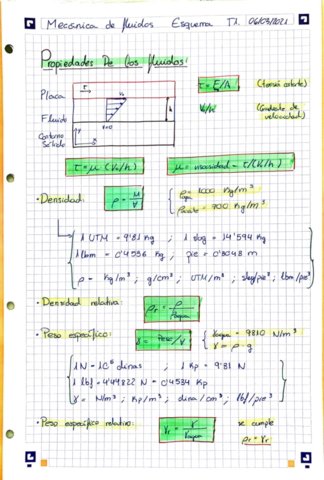 Mecánica de fluidos Esquema T1. 06/03/2021
Propiedades De los fluidos:
Placa
Fluido
Contorno
Sólido
τ
h
V=0
y
x
τ = F/A (tensión cortante)
V₀/h (Gradiente de velocidad)
τ = μ (V₀/h) μ = viscosidad = τ/(V₀/h)
· Densidad: ρ = M/V { ρagua = 1000 Kg/m³
ρaceite = 900 Kg/m³
1 UTM = 9'81 Kg ; 1 slug = 14'594 Kg
1 lbm = 0'4536 Kg ; pie = 0'3048 m
ρ = Kg/m³ ; g/cm³ ; UTM/m³ ; slug/pie³ ; lbm/pie³
· Densidad relativa: ρr = ρ/ρagua
· Peso específico: γ = Peso/V { γagua = 9810 N/m³
γ = ρ·g
1 N = 10⁵ dinas ; 1 Kp = 9'81 N
1 lbf = 4'44822 N = 0'4534 Kp
γ = N/m³ ; Kp/m³ ; dina/cm³ ; lbf/pie³
· Peso específico relativo: γr = γ/γagua se cumple
ρr = γr